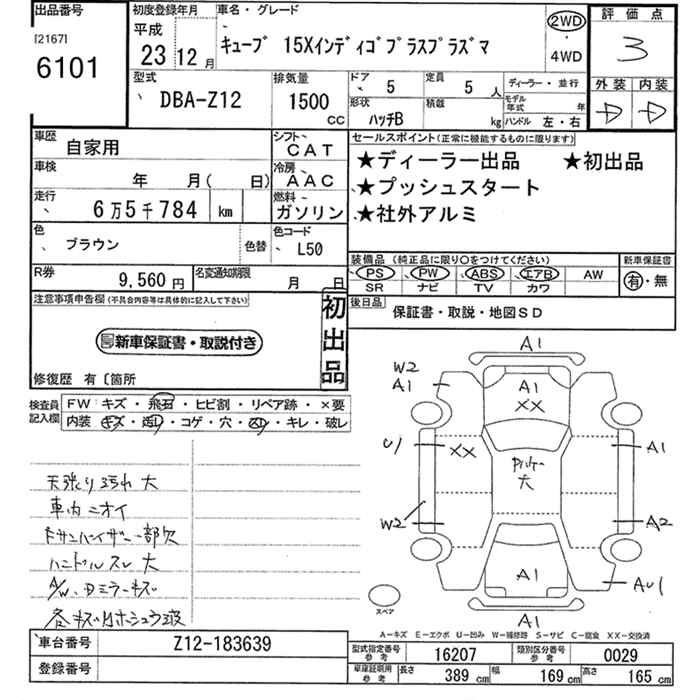 出品番号
[2167]
6101
初度登録年月
平成
23 12 月
車名・グレード
キューブ 15Xインディゴプラスプラズマ
2WD
・
4WD
評価点
3
外装 内装
D D
型式
DBA-Z12
排気量
1500
CC
ドア 5
定員 5 人
形状 ハッチB
積載 kg
ディーラー・並行
モデル年式 年
ハンドル 左・右
車歴 自家用
シフト CAT
車検 年 月( 日)
冷房 AAC
走行 6万5千784 km
燃料 ガソリン
色 ブラウン 色替
色コード L50
R券 9,560 円
名変通知期限 月 日
セールスポイント(正常に機能するものに限ります)
★ディーラー出品 ★初出品
★プッシュスタート
★社外アルミ
装備品(純正品に限り〇をつけてください)
新車保証書
PS PW ABS エアB AW
有・無
SR ナビ TV カワ
後日品
保証書・取説・地図SD
注意事項申告欄(不具合内容等は具体的に記入して下さい)
新車保証書・取説付き
初出品
修復歴 有〔箇所
検査員記入欄
FW キズ・飛石・ヒビ割・リペア跡・×要
内装 キズ・汚レ・コゲ・穴・凶レ・キレ・破レ
天張り汚れ 大
車内ニオイ
ハンドルスレ 大
A1
W2
A1
A1
XX
U1
XX
A1
大
W2
A2
A1
AU1
A1
スペア
A-キズ E-エクボ U-凹み W-補修跡 S-サビ C-腐食 XX-交換済
車台番号 Z12-183639
登録番号
型式指定番号 参考 16207
類別区分番号 参考 0029
車庫証明用 参考
長さ 389 cm
幅 169 cm
高さ 165 cm